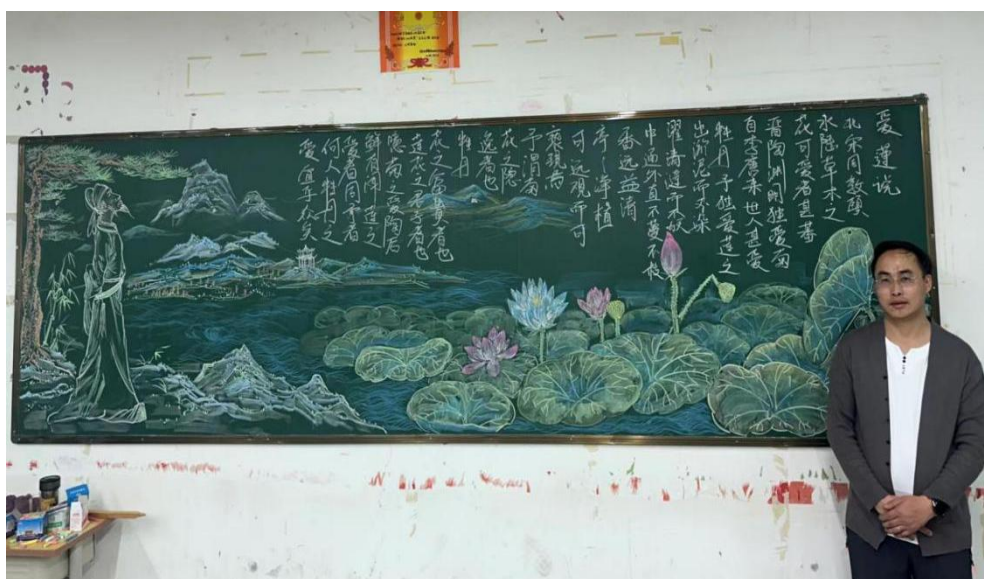 爱莲说
北宋周敦颐
水陆草木之
花可爱者甚蕃
晋陶渊明独爱菊
自李唐来世人甚爱
牡丹予独爱莲之
出淤泥而不染
濯清涟而不妖
中通外直不蔓不枝
香远益清
亭亭净植
可远观而可
亵玩焉
予谓菊
花之隐
逸者也
牡丹
花之富贵者也
莲花之君子者也
噫菊之爱陶后
鲜有闻莲之
爱者同予者
何人牡丹之
爱宜乎众矣